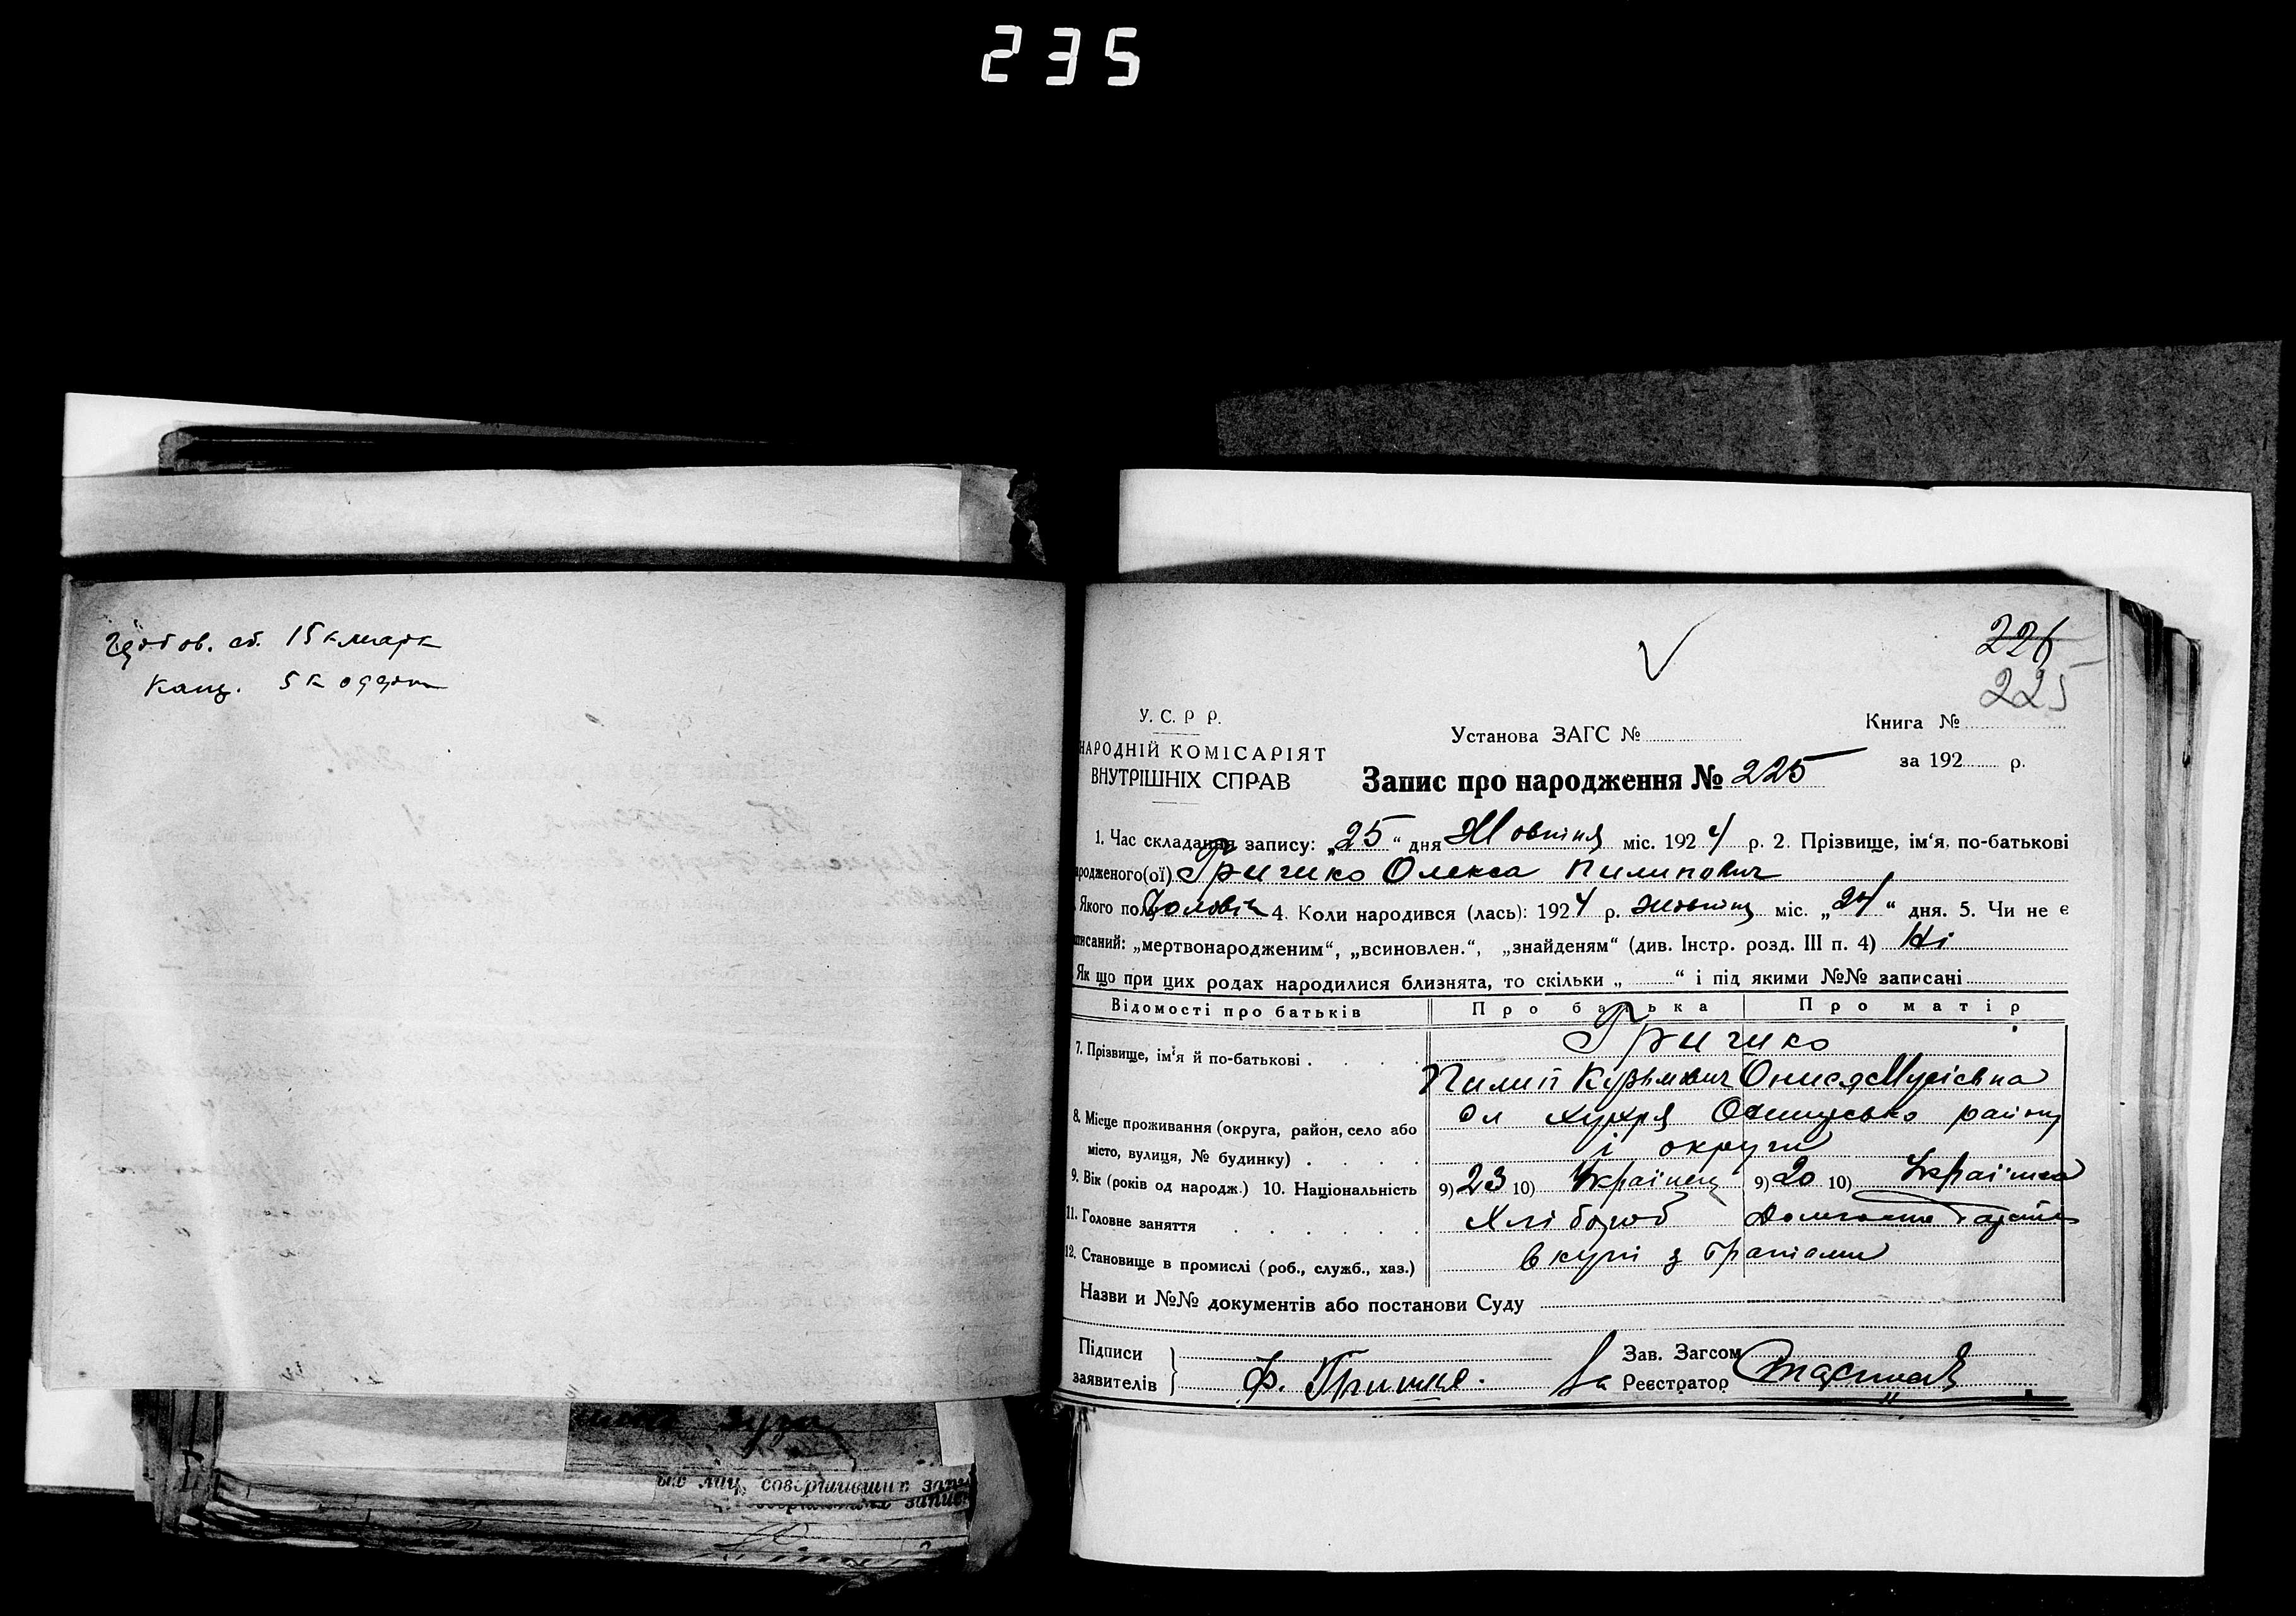 235
15 к марк
канц. 5 к
226
225
У. С. Р Р.
НАРОДНІЙ КОМІСАРІЯТ
ВНУТРІШНІХ СПРАВ
Установа ЗАГС №
Книга №
за 192 р.
Запис про народження № 225
1. Час складання запису: „25“ дня Жовтня міс. 1924 р. 2. Прізвище, ім‘я, по-батькові
родженого(ої) Гричко Олекса Пилипович
Якого полу Чоловіч 4. Коли народився (лась): 1924 р. Жовтня міс. „24“ дня. 5. Чи не є
писаний: „мертвонародженим“, „всиновлен.“, „знайденям“ (див. Інстр. розд. III п. 4) Ні
Як що при цих родах народилися близнята, то скільки „ “ і під якими №№ записані
Відомості про батьків Про батька Про матір
7. Прізвище, ім‘я й по-батькові . . . Гричко
Пилип Кузьмович Онися Мусієвна
8. Місце проживання (округа, район, село або хухря району
місто, вулиця, № будинку) . . . . і округи
9. Вік (років од народж.) 10. Національність 9) 23 10) Українец 9) 20 10) Українка
11. Головне заняття . . . . . Хлібороб
12. Становище в промислі (роб., служб., хаз.) вкупі з
Назви и №№ документів або постанови Суду
Підписи
заявителів Ф. Гришко.
За
Зав. Загсом
Реєстратор
их лиц, совершивших запи